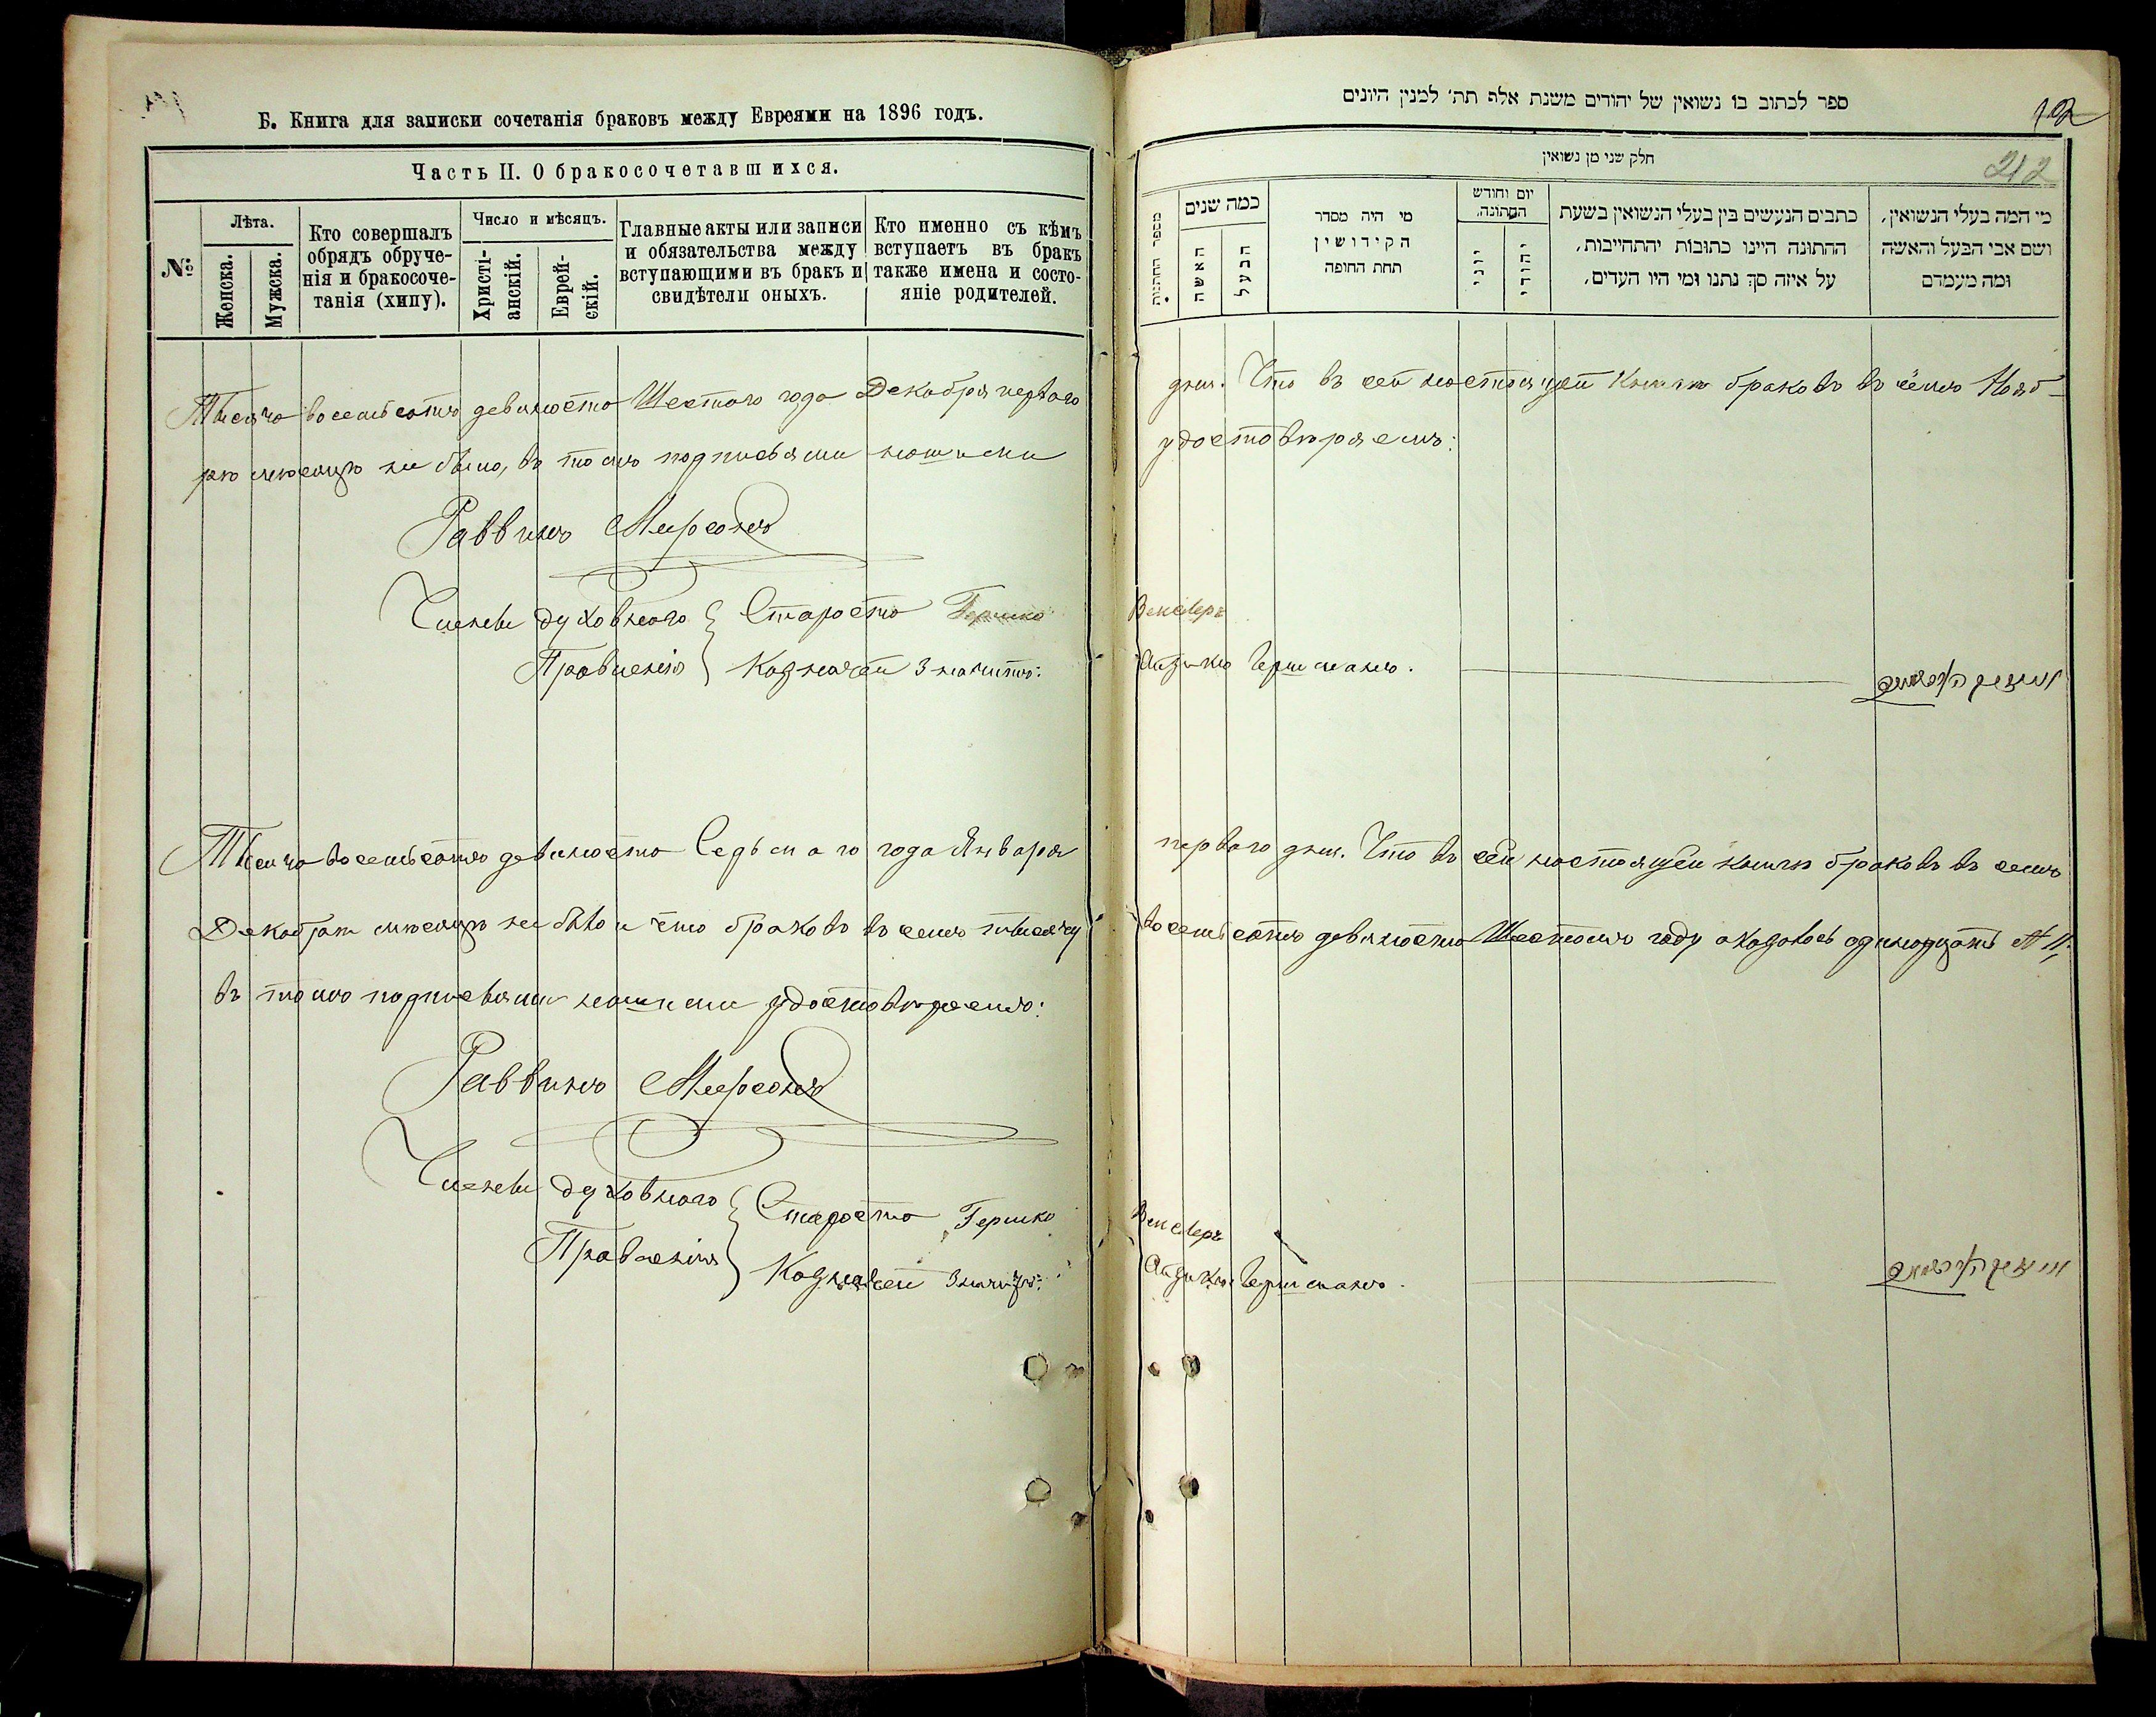 Б. Книга для записки сочетанія браковъ между Евреями на 1896 годъ.
Часть II. О бракосочетавшихся.
№
Лѣта.
Женска.
Мужска.
Кто совершалъ
обрядъ обруче-
нія и бракосоче-
танія (хипу).
Число и мѣсяцъ.
Христі-
анскій.
Еврей-
скій.
Главные акты или записи
и обязательства между
вступающими въ бракъ и
свидѣтели оныхъ.
Кто именно съ кѣмъ
вступаетъ въ бракъ
также имена и состо-
яніе родителей.
Тысяча восемьсотъ девяносто Шестого года Декабря первого
рѣ мѣсяцѣ не было, въ томъ подписями нашими
Раввинъ Мерсонъ
Члены духовного { Староста Гершко
Правленія } Казначей значитъ:
Тысяча восемьсотъ девяносто Седьмаго года Января
Декабрѣ мѣсяцѣ не было и что браковъ въ семъ тысячу
въ томъ подписями нашими удостовѣряемъ:
Раввинъ Мерсонъ
Члены духовного { Староста Гершко
Правленія } Казначей значитъ:
ספר לכתוב בו נשואין של יהודים משנת אלף תת' למנין היונים
212
חלק שני מן נשואין
מספר החתונות
כמה שנים
האשה
הבעל
מי היה מסדר
הקידושין
תחת החופה
יום וחודש
החתונה,
יוני
יהודי
כתבים הנעשים בין בעלי הנשואין בשעת
ההתונה היינו כתובות יהתחייבות,
על איזה סך נתנו ומי היו העדים,
מי המה בעלי הנשואין,
ושם אבי הבעל והאשה
ומה מעמדם
дня. Что въ сей настоящей Книгѣ браковъ въ семъ Нояб-
удостовѣряемъ:
Векслеръ
Айзикъ Герцманъ.
первого дня. Что въ сей настоящей книгѣ браковъ въ семъ
восемьсотъ девяносто Шестомъ году оказалось одинадцать № 11,
Векслеръ
Айзикъ Герцманъ.